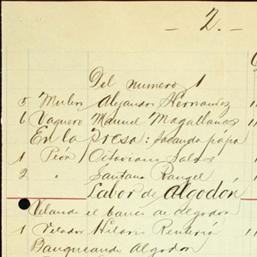 - 2. -
Del numero 1
5 Alejandro Hernandez
6 Vaquero Manuel Magallanes
En la Presa: sacando papa
1 Peón Octaviano Salas
2 " Santana Rangel
Labor de Algodón
Velando el banco de algodon
1 Velador Hilario Renteria
Banqueando Algodon